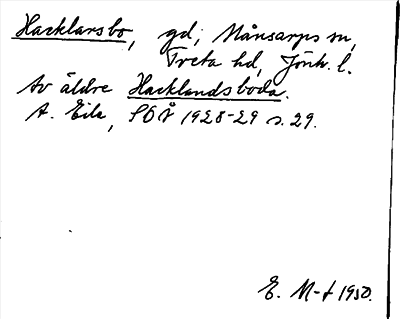 Hacklarsbo, gd, Månsarps sn,
Tveta hd, Jönk. l.
Av äldre Hacklandsboda.
A. Ejle, SOÅ 1928-29 s. 29.
E. M-t 1950.